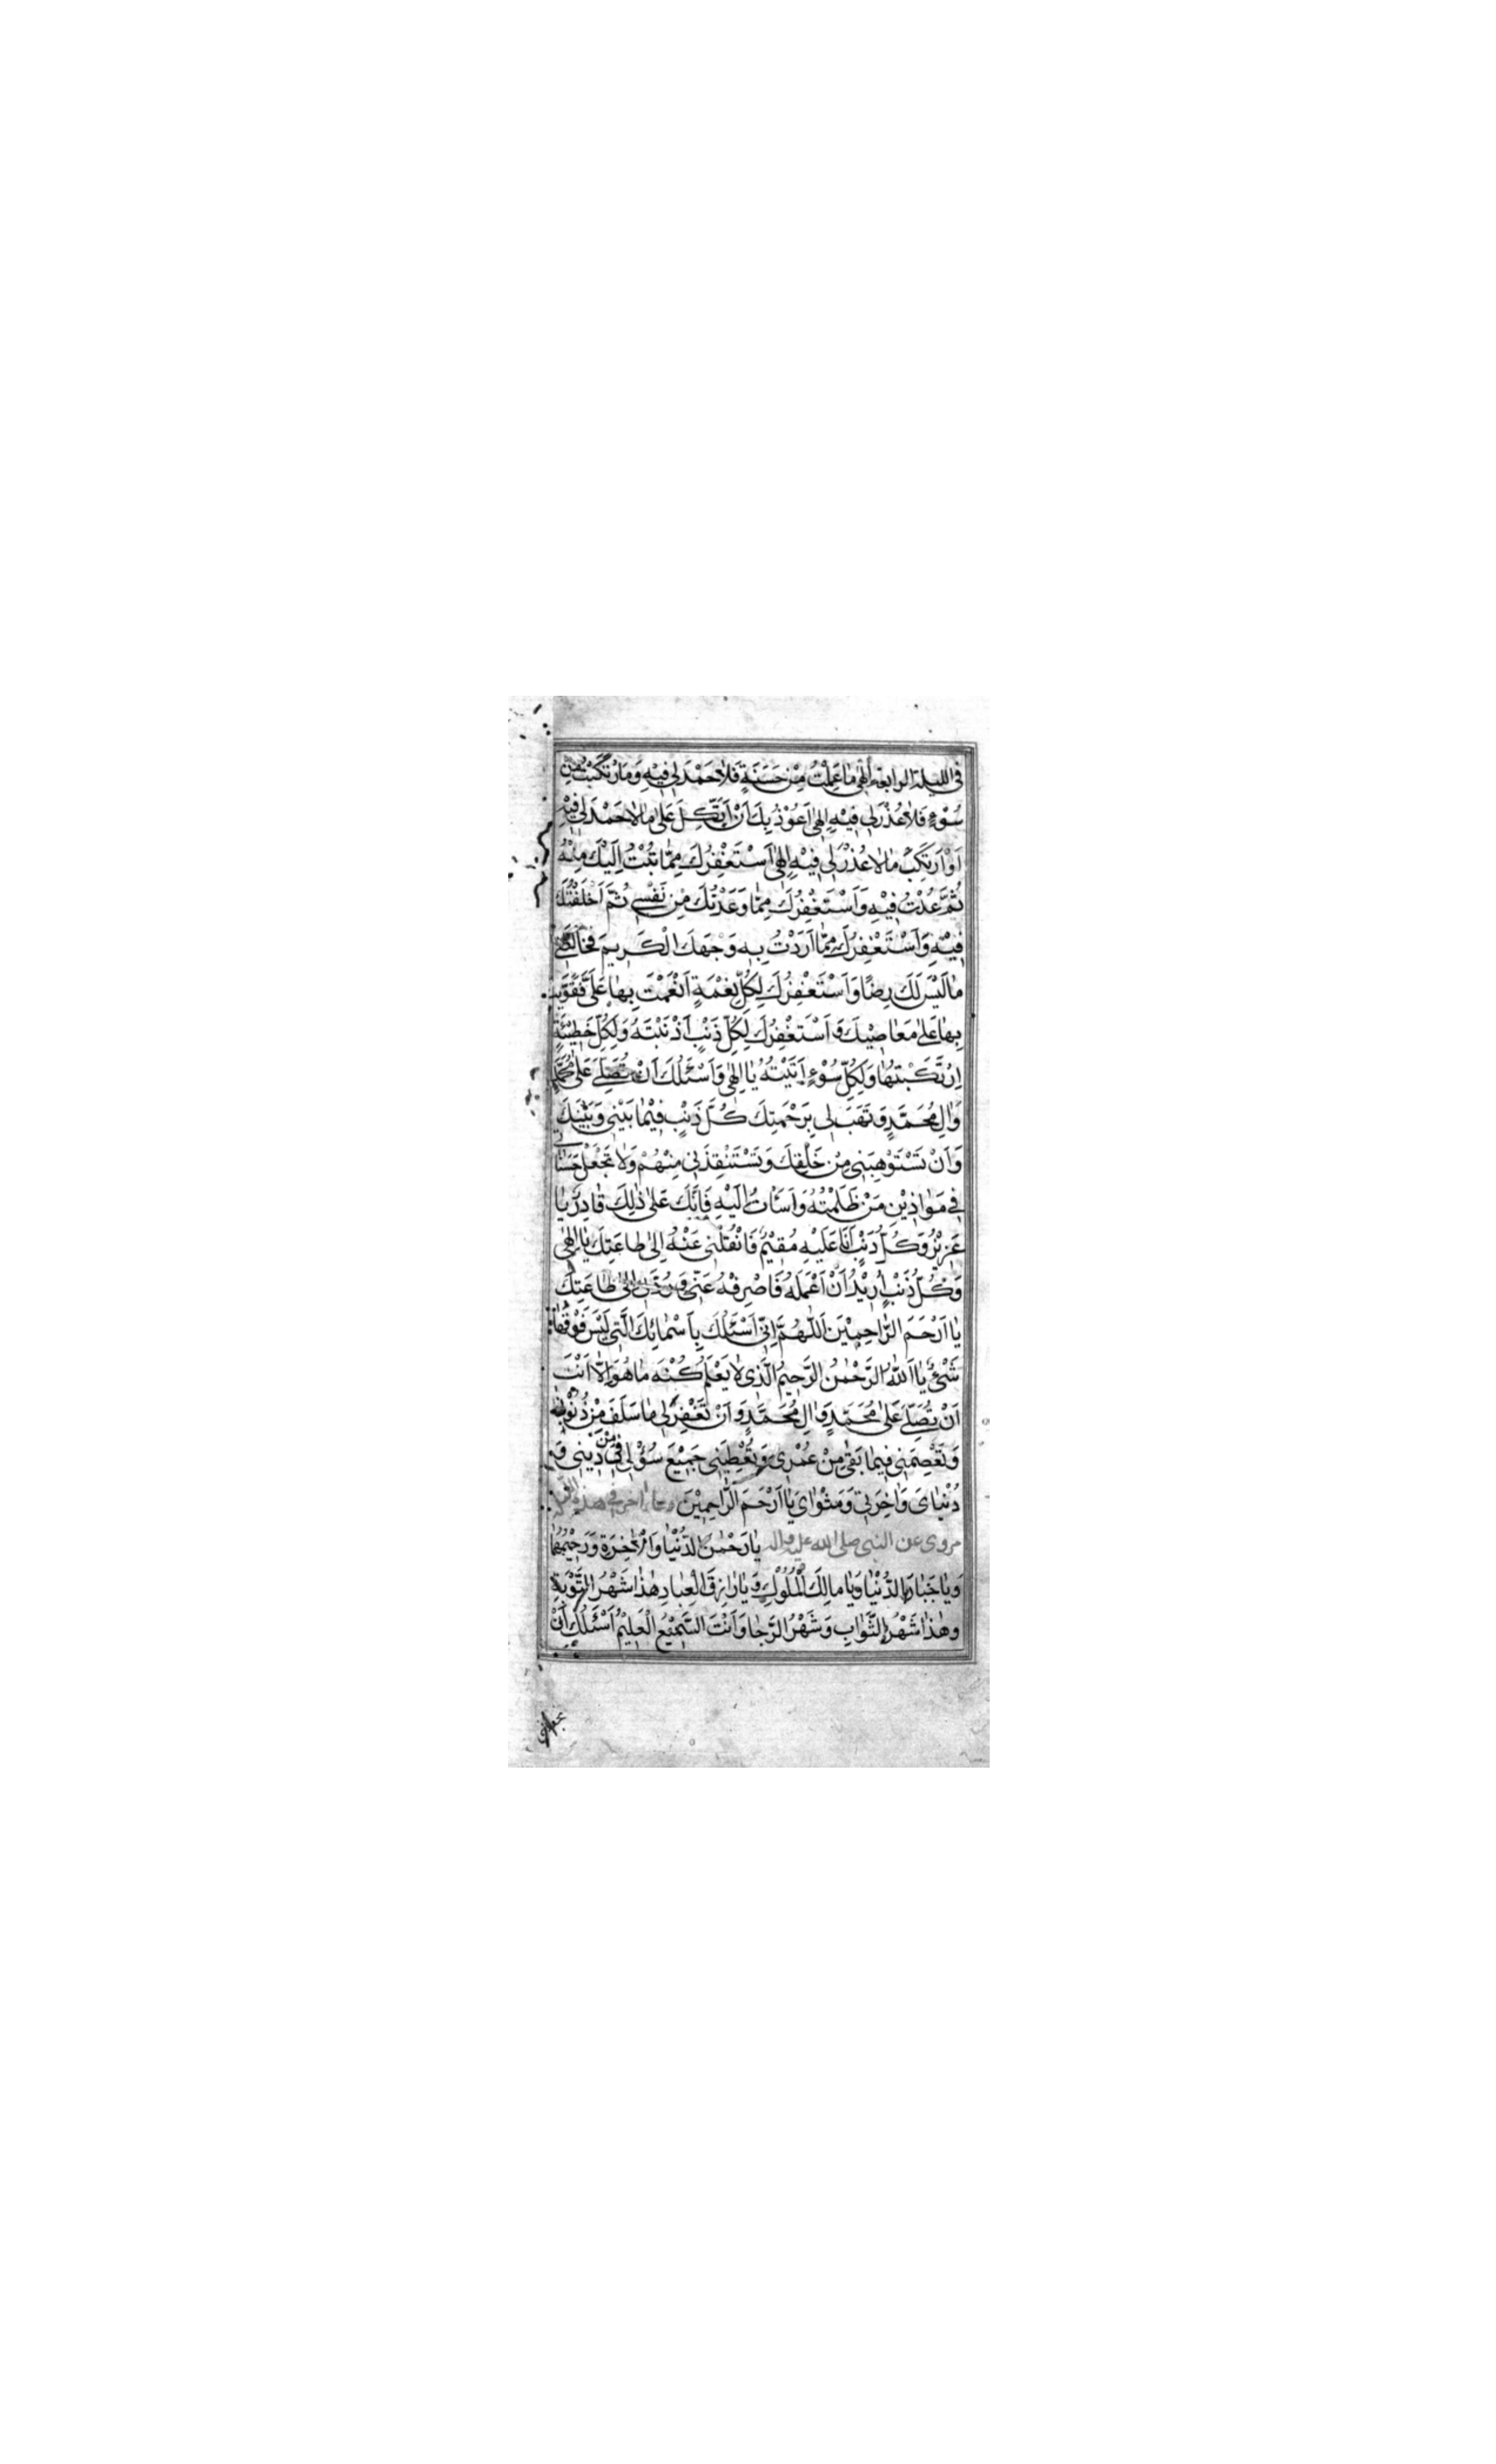 في الليلة الرابعة الهي ما عَمِلْتُ مِنْ حَسَنَةٍ فَلا حَمْدَ لي فيهِ وَمَا ارْتَكَبْتُ مِنْ
سُوْءٍ فَلا عُذْرَ لي فيْهِ اِلهي اَعُوْذُ بِكَ اَنْ اَتَّكِلَ عَلى ما لا حَمْدَ لي فيْهِ
اَوْ اَرْتَكِبَ ما لا عُذْرَ لي فيْهِ اِلهي اَسْتَغْفِرُكَ مِمّا تُبْتُ اِلَيْكَ مِنْهُ
ثُمَّ عُدْتُ فيْهِ وَاَسْتَغْفِرُكَ مِمّا وَعَدْتُكَ مِنْ نَفْسي ثُمَّ اَخْلَفْتُكَ
فيْهِ وَاَسْتَغْفِرُكَ مِمّا اَرَدْتُ بِه وَجْهَكَ الْكَريمَ فَخالَطَني
ما لَيْسَ لَكَ رِضًا وَاَسْتَغْفِرُكَ لِكُلِّ نِعْمَةٍ اَنْعَمْتَ بِها عَلَيَّ فَقَوَيْتُ
بِها عَلى مَعاصيْكَ وَ اَسْتَغْفِرُكَ لِكُلِّ ذَنْبٍ اَذْنَبْتُهُ وَلِكُلِّ خَطيْئَةٍ
اِرْتَكَبْتُها وَلِكُلِّ سُوْءٍ اَتَيْتُهُ يا اِلهي وَاَسْئَلُكَ اَنْ تُصَلِّيَ عَلى مُحَمَّدٍ
وَالِ مُحَمَّدٍ وَ تَهَبَ لي بِرَحْمَتِكَ كُلَّ ذَنْبٍ فيْما بَيْني وَبَيْنَكَ
وَاَنْ تَسْتَوْهِبَني مِنْ خَلْقِكَ وَتَسْتَنْقِذَني مِنْهُمْ وَلا تَجْعَلْ حَسَناتي
في مَوازيْنِ مَنْ ظَلَمْتُهُ وَاَسَأتُ اِلَيْهِ فَاِنَّكَ عَلى ذلِكَ قادِرٌ يا
عَزيْزُ وَكُلُّ ذَنْبٍ اَنَا عَلَيْهِ مُقيْمٌ فَانْقُلْني عَنْهُ اِلى طاعَتِكَ يا اِلهي
وَكُلُّ ذَنْبٍ اُريْدُ اَنْ اَعْمَلَهُ فَاصْرِفْهُ عَنّي وَرُدَّني اِلى طاعَتِكَ
يا اَرْحَمَ الرّاحِميْنَ اَللّهُمَّ اِنّي اَسْئَلُكَ بِاَسْمائِكَ الَّتي لَيْسَ فَوْقَها
شَيْءٌ يا اَللّهُ الرَّحْمنُ الرَّحيْمُ الَّذي لا يَعْلَمُ كُنْهَ ما هُوَ اِلّا اَنْتَ
اَنْ تُصَلِّيَ عَلى مُحَمَّدٍ وَالِ مُحَمَّدٍ وَ اَنْ تَغْفِرَ لي ما سَلَفَ مِنْ ذُنُوْبي
وَتَعْصِمَني فيما بَقِيَ مِنْ عُمْري وَتُعْطِيَني جَميْعَ سُؤْلي في ديْني وَ
دُنْيايَ وَاخِرَتي وَمَثْوايَ يا اَرْحَمَ الرّاحِميْنَ دعاء اخر في هذه
مروي عن النبي صلى الله عليه واله يا رَحْمنَ الدُّنْيا وَالْاخِرَةِ وَرَحيْمَهُما
وَيا جَبّارَ الدُّنْيا وَيا مالِكَ الْمُلُوْكِ وَيا رازِقَ الْعِبادِ هذا شَهْرُ التَّوْبَةِ
وهذا شَهْرُ الثَّوابِ وَشَهْرُ الرَّجا وَاَنْتَ السَّميْعُ الْعَليْمُ اَسْئَلُكَ اَنْ